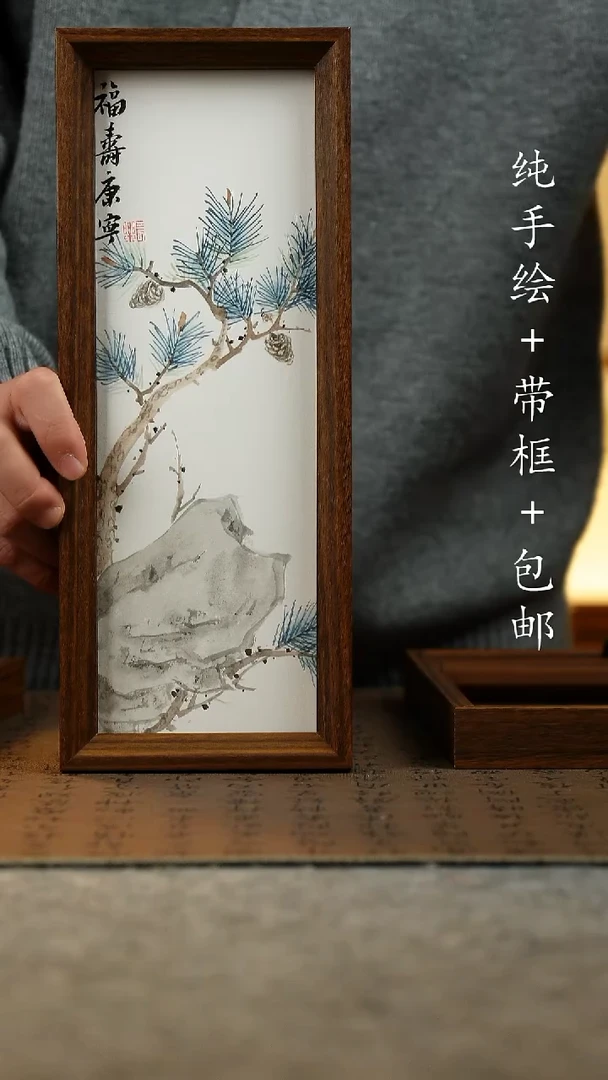 福壽康寧
纯手绘+带框+包邮